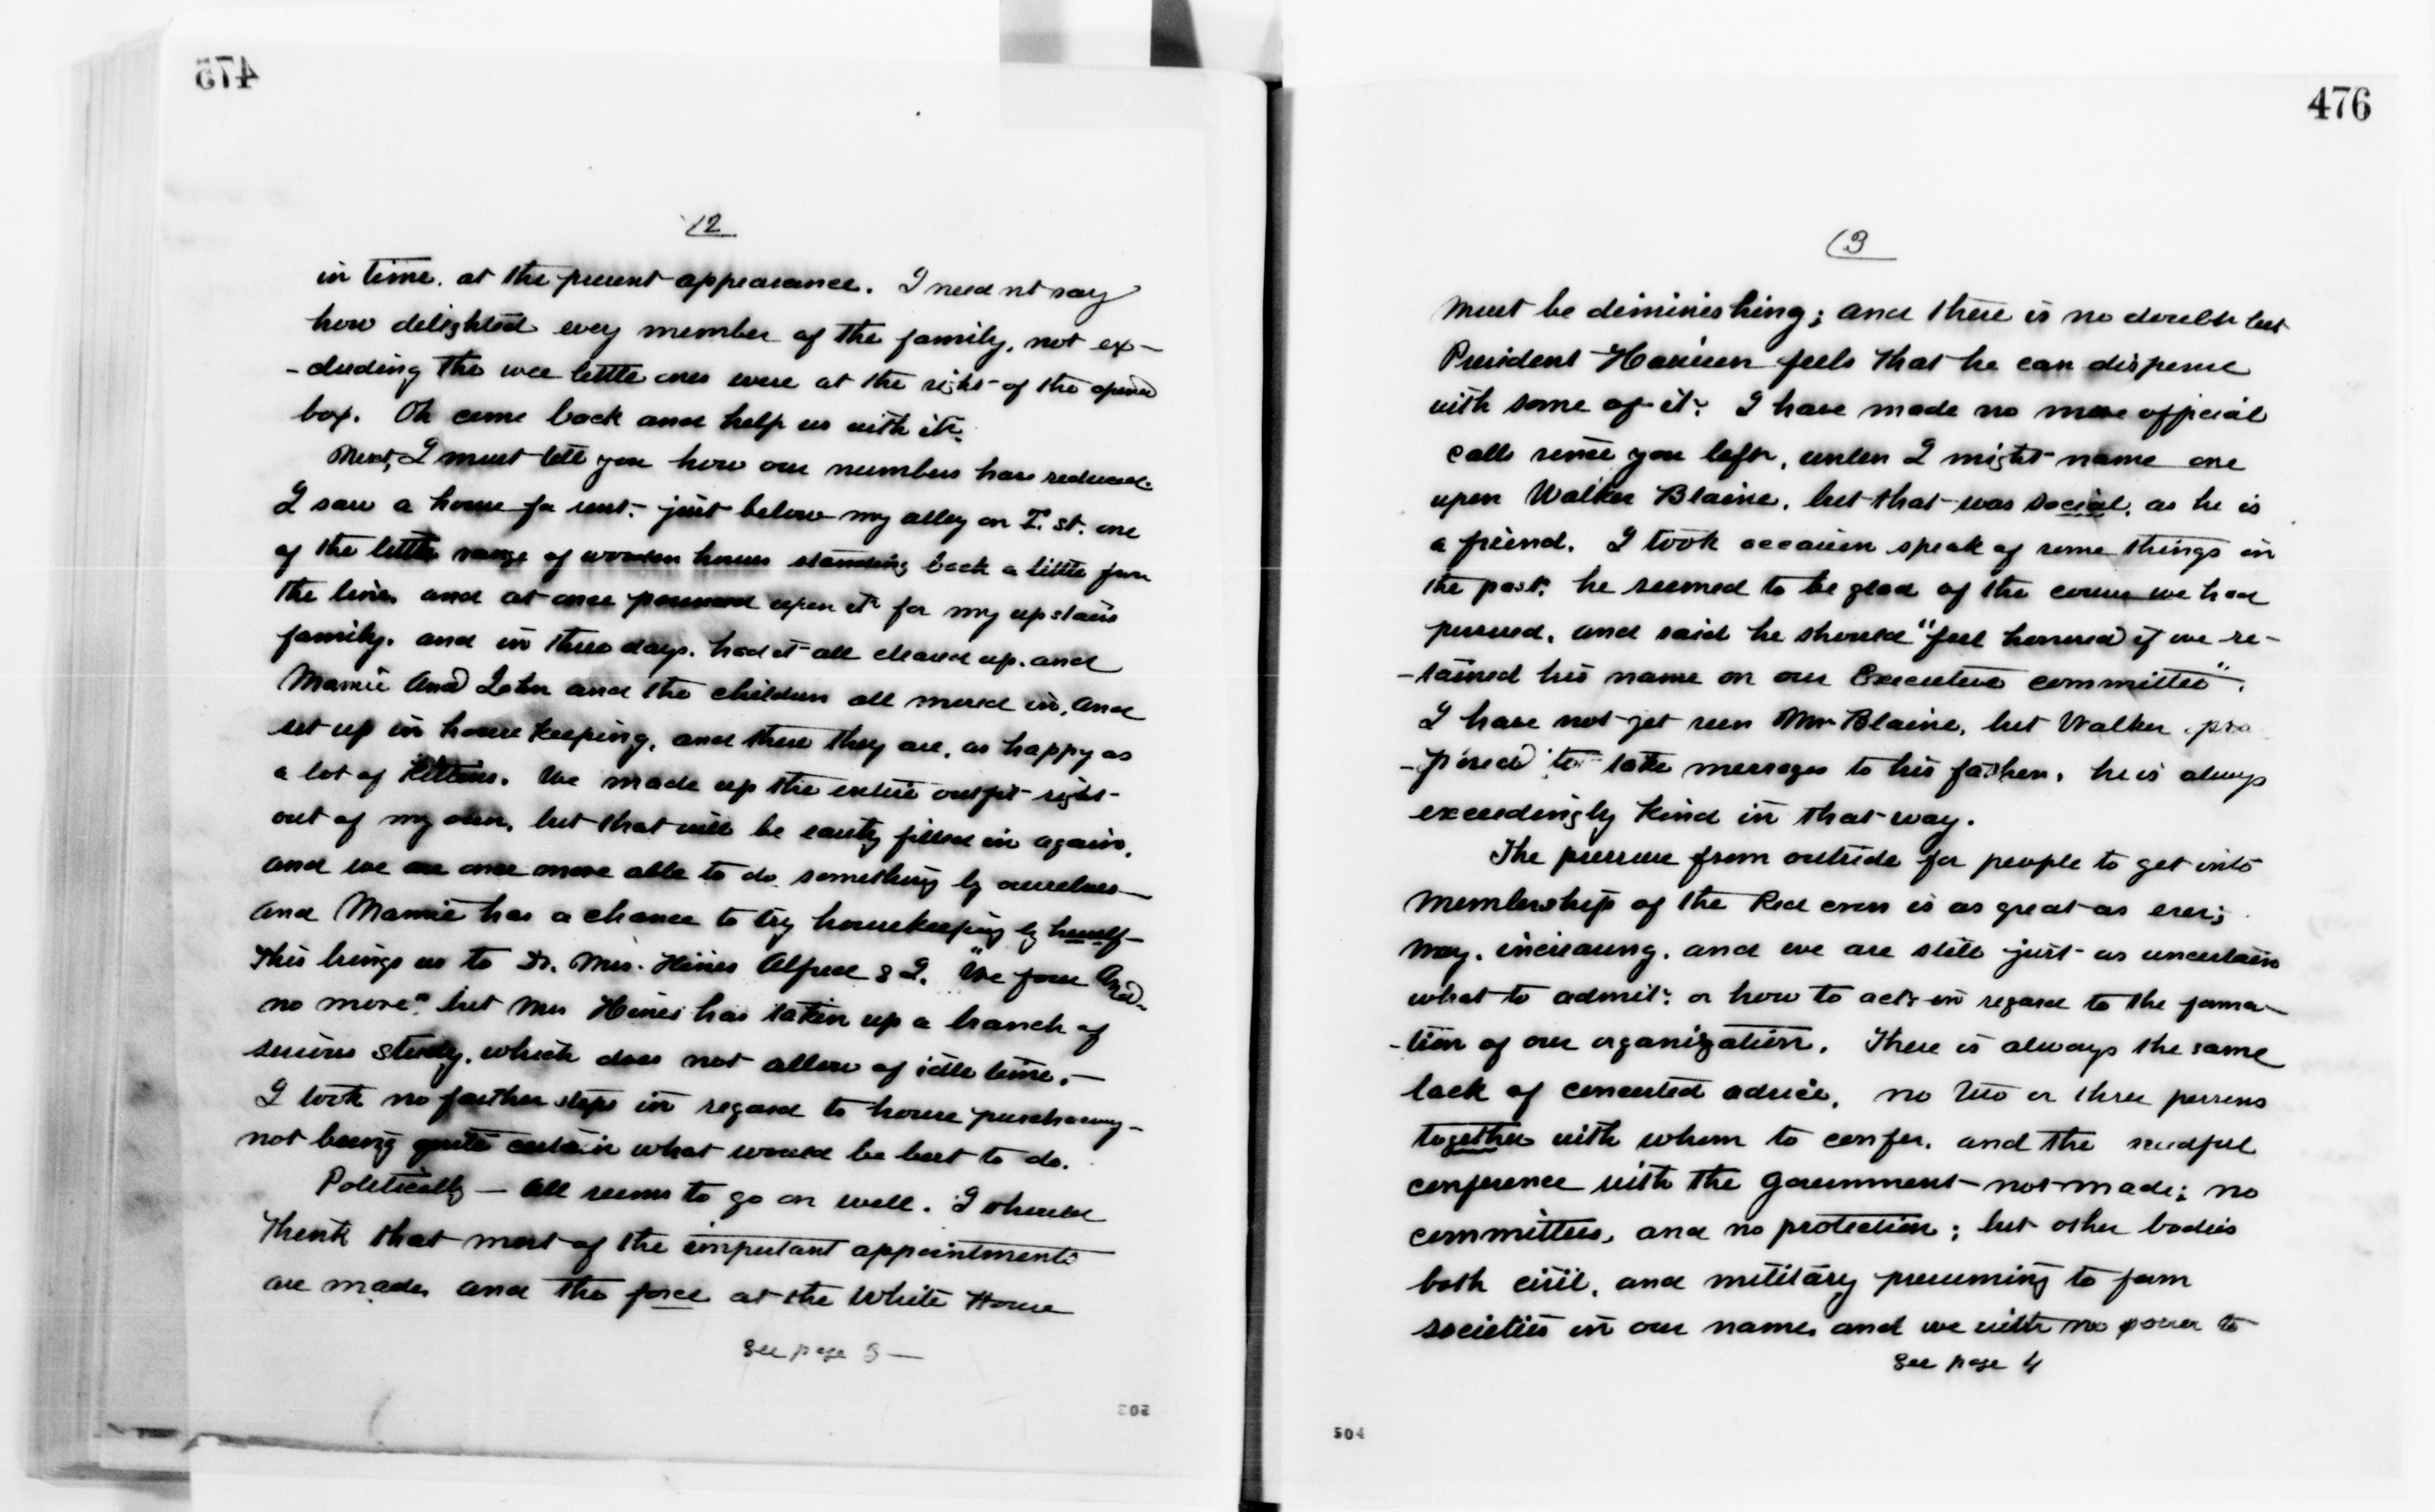 475
(2
in time. at the present appearance. I need nt say
how delighted every member of the family, not ex-
-cluding the wee little ones were at the sight of the opened
box. Oh come back and help us with it.
Next, I must tell you how our numbers have reduced.
I saw a house for rent. just below my alley on I. st. one
of the little range of wooden houses standing back a little from
the line, and at once pounced upon it for my upstairs
family. and in three days. had it all cleared up. and
Mamie and John and the children all moved in, and
set up in house keeping, and there they are, as happy as
a lot of kittens. We made up the entire outfit right
out of my own, but that will be easily filled in again,
and we are once more able to do something by ourselves—
and Mamie has a chance to try housekeeping by herself—
This brings us to Dr. Mrs. Hines Alfred & I. "We four And
no more" but Mrs Hines has taken up a branch of
serious study, which does not allow of idle time.—
I took no farther steps in regard to house purchasing—
not being quite certain what would be best to do.
Politically — all seems to go on well. I should
think that most of the important appointments
are made, and the force at the White House
See page 3 —
503
476
(3
must be diminishing; and there is no doubt but
President Harrison feels that he can dispense
with some of it. I have made no more official
calls since you left, unless I might name one
upon Walker Blaine, but that was social, as he is
a friend. I took occasion speak of some things in
the past. he seemed to be glad of the course we had
pursued, and said he should "feel honored if we re-
-tained his name on our Executive committee".
I have not yet seen Mr Blaine, but Walker pro
-posed to take messages to his father, he is always
exceedingly kind in that way.
The pressure from outside for people to get into
membership of the Red cross is as great as ever;
nay, increasing, and we are still just as uncertain
what to admit, or how to act in regard to the forma-
-tion of our organization. There is always the same
lack of concerted advice, no two or three persons
together with whom to confer, and the needful
conference with the Government not made; no
committees, and no protection; but other bodies
both civil, and military presuming to form
societies in our name, and we with no power to
See page 4
504